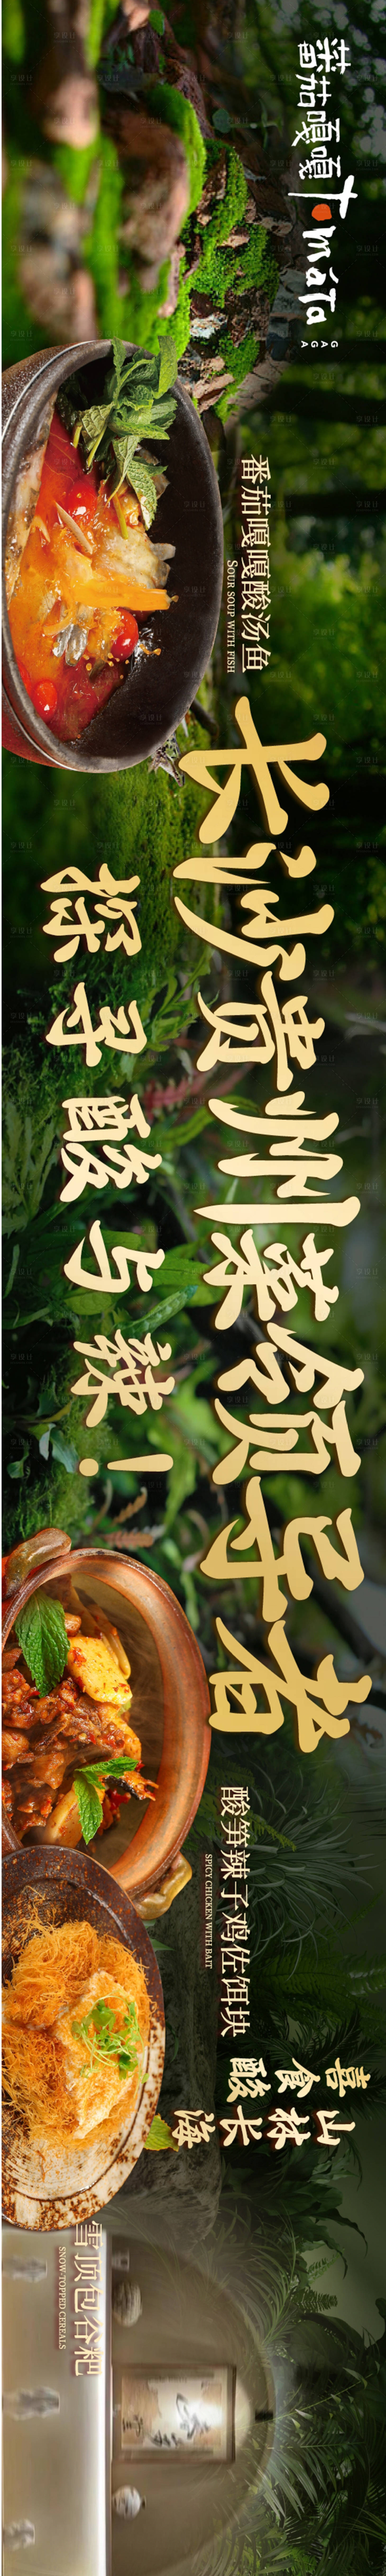 番茄嘎嘎
Tomato
GAGA
番茄嘎嘎酸汤鱼
SOUR SOUP WITH FISH
长沙贵州菜领导者
探寻酸与辣！
酸笋辣子鸡佐饵块
SPICY CHICKEN WITH BAIT
喜食酸
山林长海
雪顶包谷粑
SNOW-TOPPED CEREALS